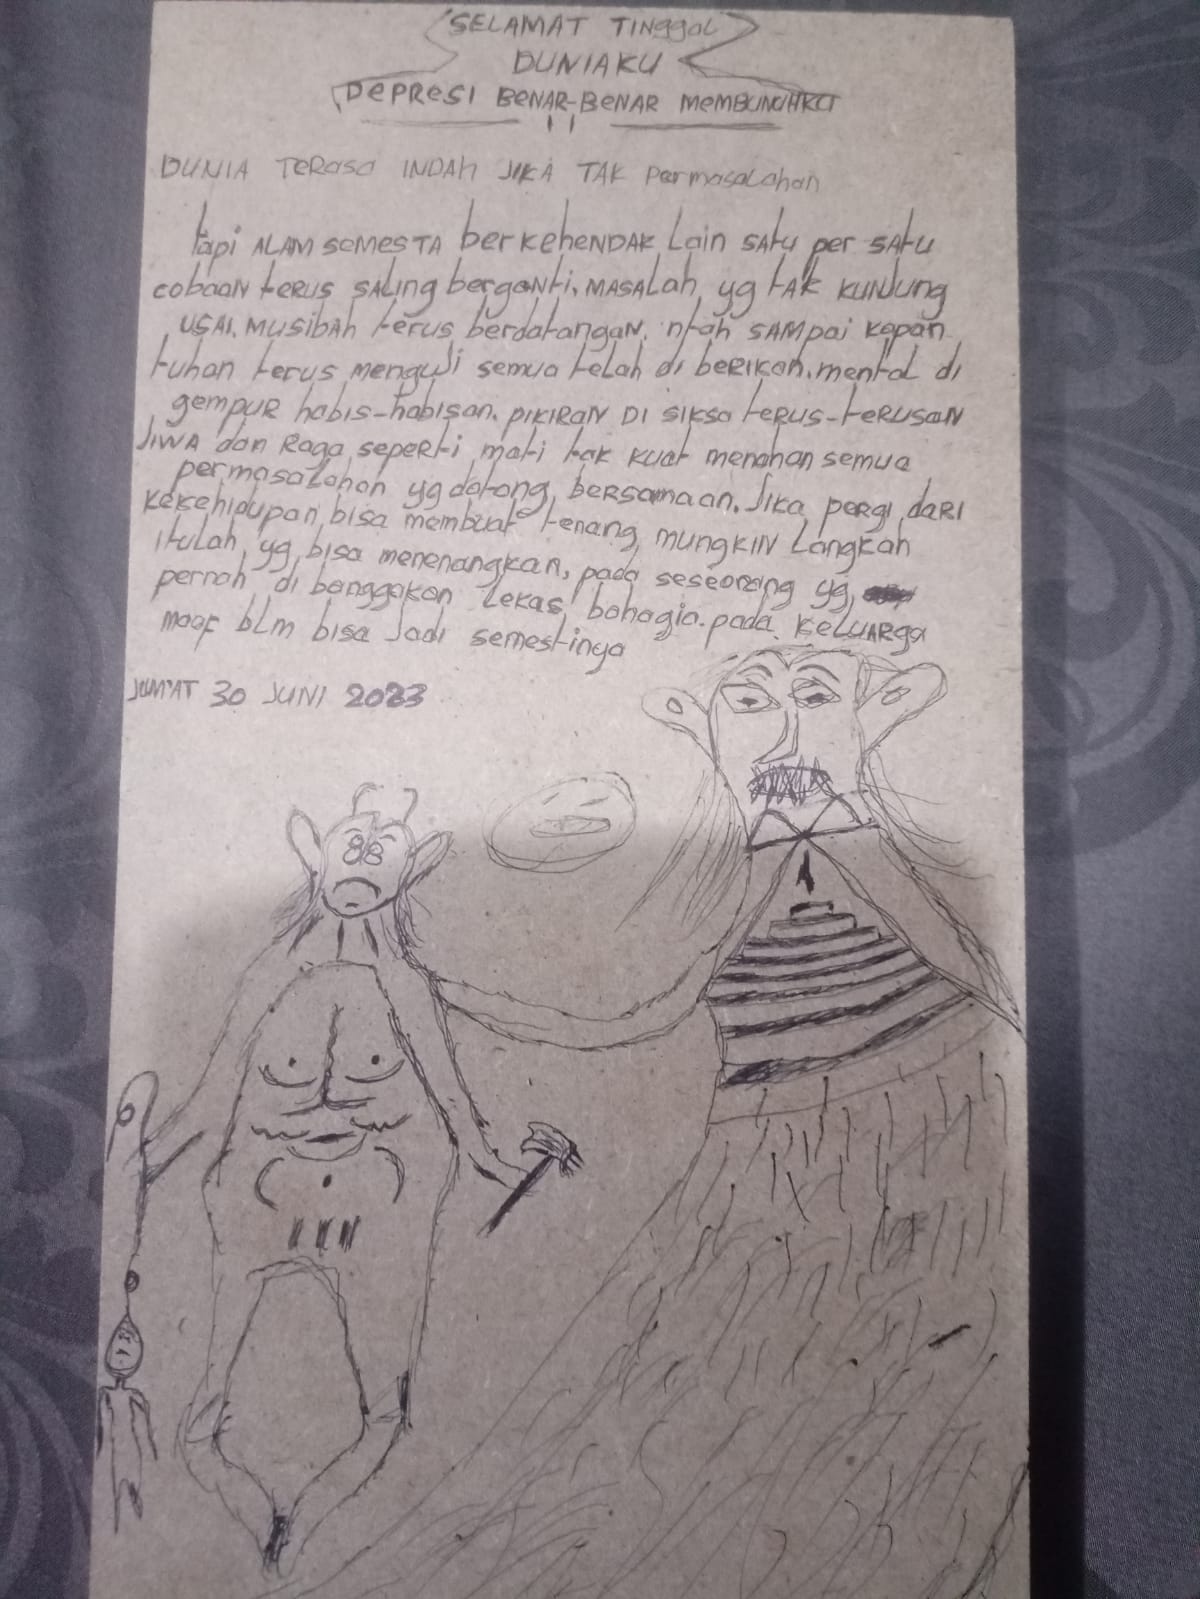 SELAMAT TINGGAL
DUNIAKU
DEPRESI BENAR-BENAR MEMBUNUHKU
DUNIA TERASA INDAH JIKA TAK PERMASALAHAN
tapi ALAM SEMESTA berkehendak Lain SATU per SATU
cobaan terus SALing berganti. MASALah yg tAK KUNJUNG
USAI. MUSIBAH terus berdatangan. ntah SAMPAi kapan
tuhan terus menguji semua telah di beRIKan. mental di
gempUR habis-habisan. PIKIRAN DI SIKSA teRUS-teRUSAN
JIWA dan Raga sepeRti mati tak kuat menahan semua
permasaLahan yg datang beRsamaan. Jika pergi daRI
kekehidupan bisa membuat tenang mungKIN Langkah
itulah yg bisa menenangkan, pada seseorang yg
pernah di banggakan Lekas bahagia. pada KeLUARga
maaf bLm bisa Jadi semestinya
JUM'AT 30 JUNI 2023